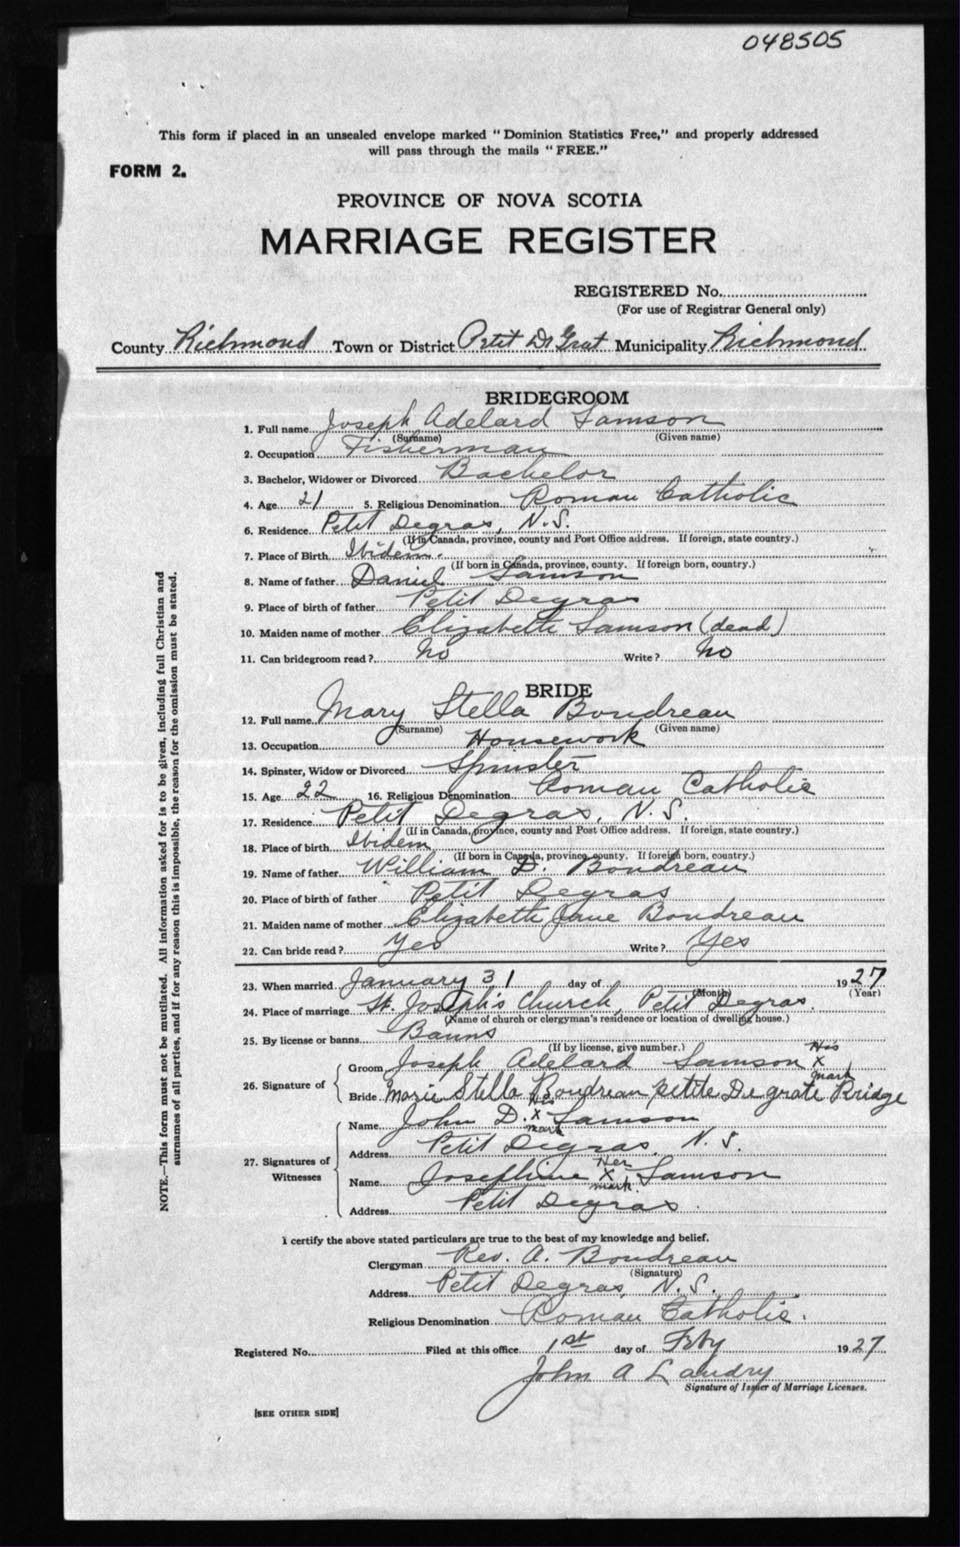 048505
This form if placed in an unsealed envelope marked "Dominion Statistics Free," and properly addressed
will pass through the mails "FREE."
FORM 2.
PROVINCE OF NOVA SCOTIA
MARRIAGE REGISTER
REGISTERED No.
(For use of Registrar General only)
County Richmond Town or District Petit De Grat Municipality Richmond
BRIDEGROOM
1. Full name Joseph Adelard Samson
(Surname) (Given name)
2. Occupation Fisherman
3. Bachelor, Widower or Divorced Bachelor
4. Age 21 5. Religious Denomination Roman Catholic
6. Residence Petit Degras, N.S.
(If in Canada, province, county and Post Office address. If foreign, state country.)
7. Place of Birth Ibidem.
(If born in Canada, province, county. If foreign born, country.)
8. Name of father Daniel Samson
9. Place of birth of father Petit Degras
10. Maiden name of mother Elizabeth Samson (dead)
11. Can bridegroom read? No Write? No
BRIDE
12. Full name Mary Stella Boudreau
(Surname) (Given name)
13. Occupation Housework
14. Spinster, Widow or Divorced Spinster
15. Age 22 16. Religious Denomination Roman Catholic
17. Residence Petit Degras, N.S.
(If in Canada, province, county and Post Office address. If foreign, state country.)
18. Place of birth Ibidem
(If born in Canada, province, county. If foreign born, country.)
19. Name of father William D. Boudreau
20. Place of birth of father Petit Degras
21. Maiden name of mother Elizabeth Jane Boudreau
22. Can bride read? Yes Write? Yes
23. When married January 31 day of 1927
(Month) (Year)
24. Place of marriage St. Joseph's Church, Petit Degras.
(Name of church or clergyman's residence or location of dwelling house.)
25. By license or banns Banns
(If by license, give number.)
26. Signature of
Groom Joseph Adelard Samson His X mark
Bride Marie Stella Boudreau petite De grate Bridge
27. Signatures of Witnesses
Name John D. His X mark Samson
Address Petit Degras, N.S.
Name Josephine Her X mark Samson
Address Petit Degras.
I certify the above stated particulars are true to the best of my knowledge and belief.
Clergyman Rev. A. Boudreau
(Signature)
Address Petit Degras, N.S.
Religious Denomination Roman Catholic.
Registered No. Filed at this office 1st day of Feby 1927
John A Landry
Signature of Issuer of Marriage Licenses.
[SEE OTHER SIDE]
NOTE.—This form must not be mutilated. All information asked for is to be given, including full Christian and
surnames of all parties, and if for any reason this is impossible, the reason for the omission must be stated.